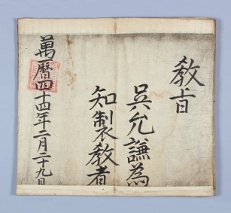 教旨
吳允謙為
知製教者
萬曆四十四年二月二十九日